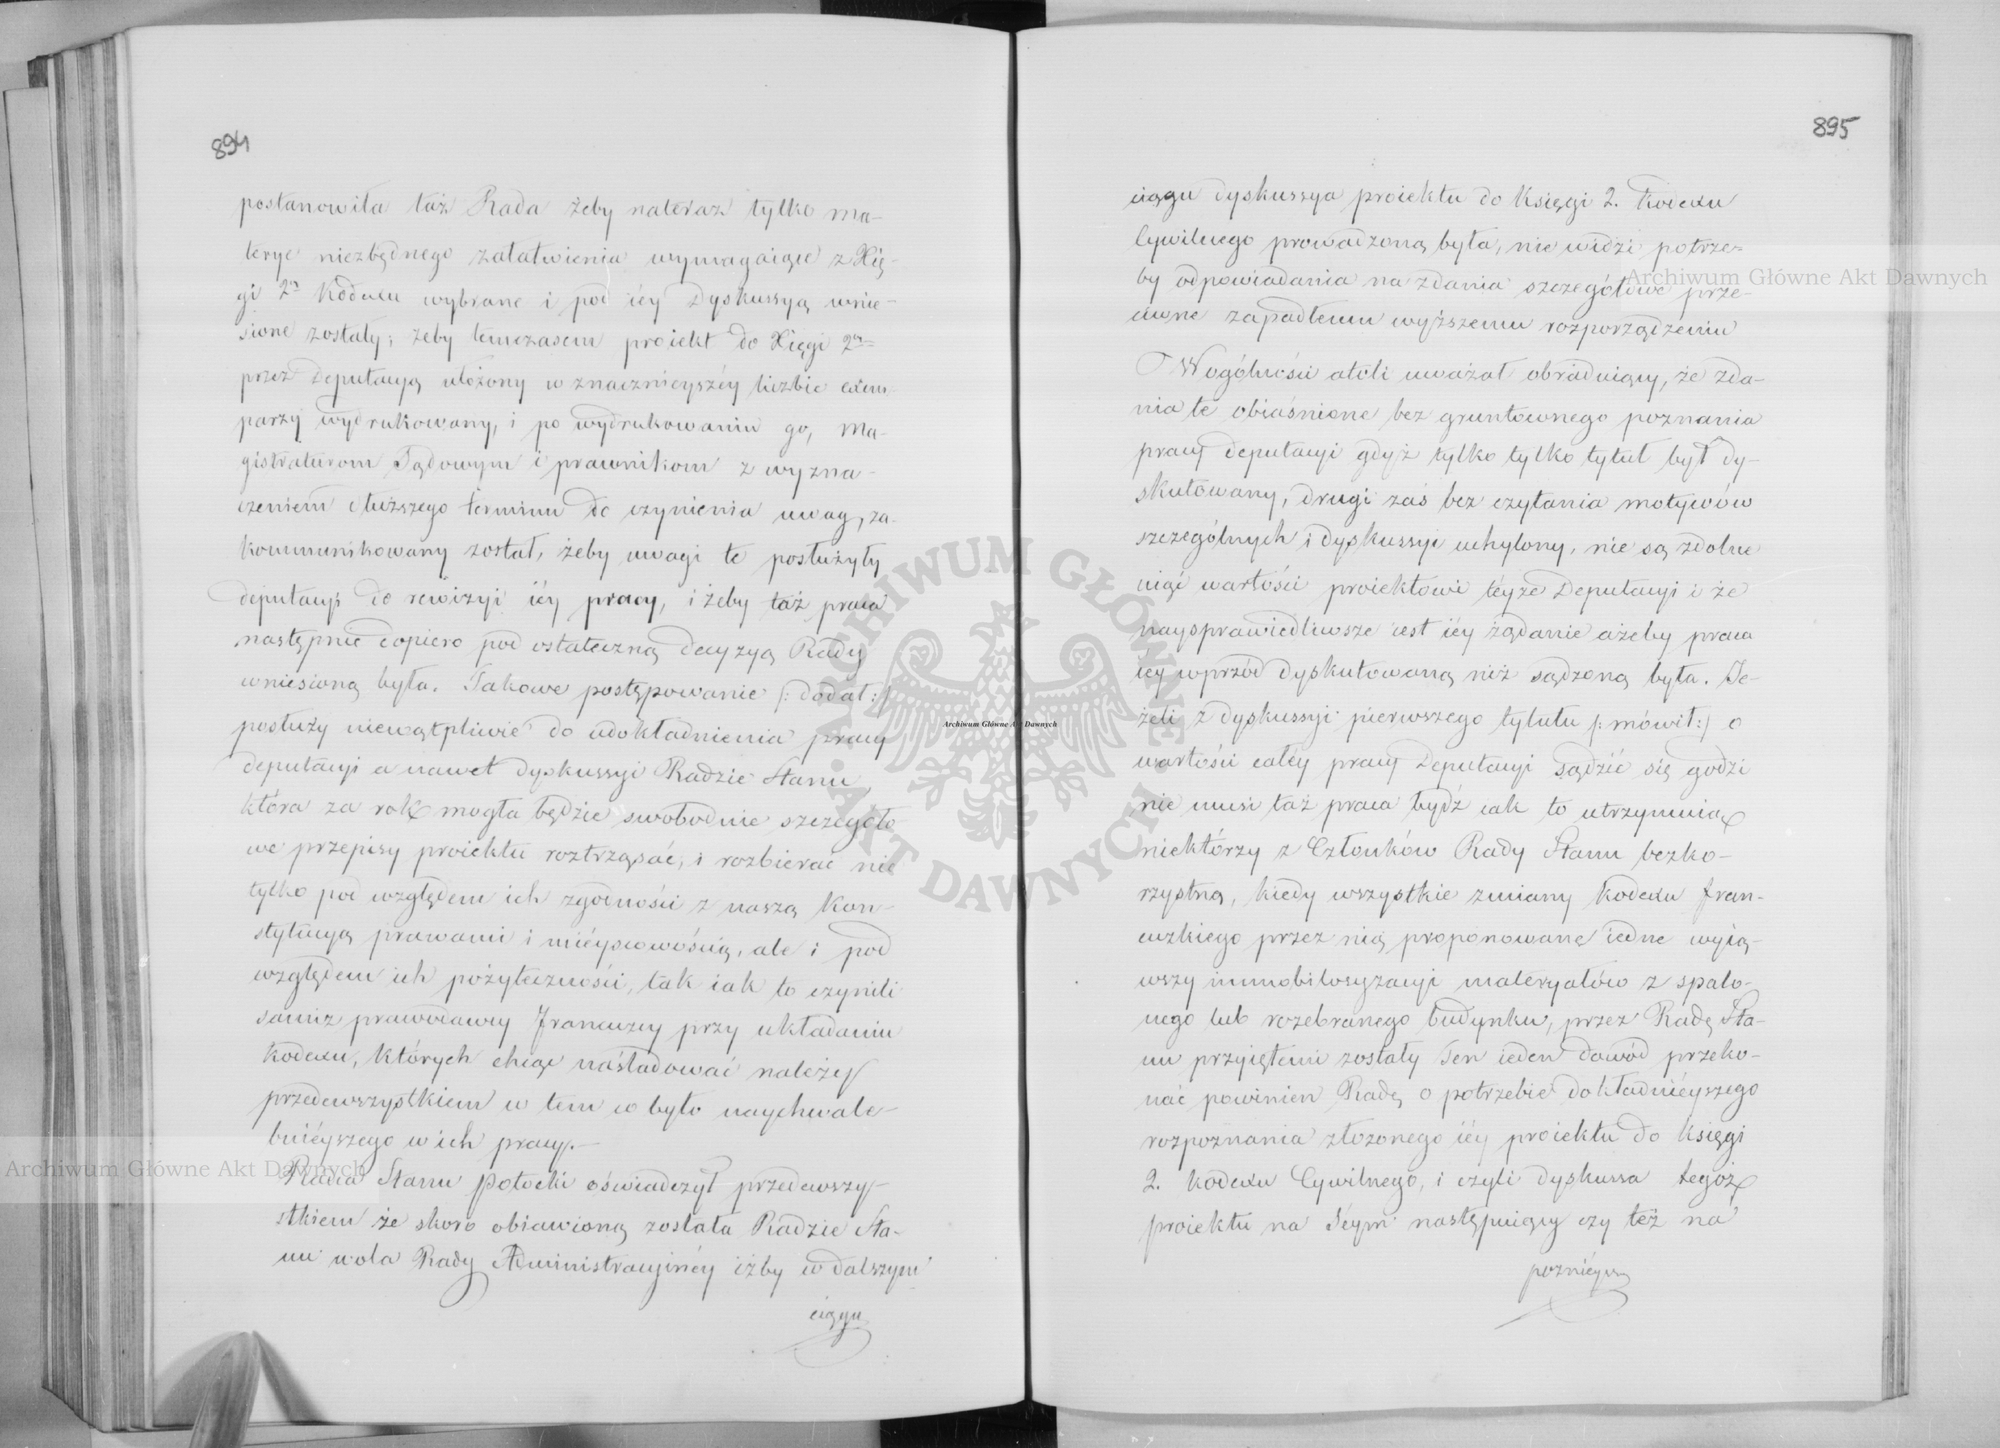 894
postanowiła taż Rada żeby nateraz tylko ma-
terye niezbędnego załatwienia wymagaiące z Xię-
gi 2ey Kodexu wybrane i pod iéy Dyskussyą wnie-
sione zostały; żeby temczasem proiekt do Xięgi 2ey
przez Deputacyą ułożony w znacznieyszéy liczbie exem-
parzy wydrukowany, i po wydrukowaniu go, Ma-
gistraturom Sądowym i prawnikom z wyzna-
czeniem dłuższego terminu do czynienia uwag, za-
kommunikowany został, żeby uwagi te posłużyły
deputacyi do rewizyi iéy pracy, i żeby taż praca
następnie dopiero pod ostateczną decyzyą Rady
wniesioną była. Takowe postępowanie /: dodał :/
posłuży niewątpliwie do udokładnienia pracy
deputacyi a nawet dyskussyi Radzie Stanu,
która za rok mogła będzie swobodnie szczegóło
we przepisy proiektu roztrząsać, i rozbierać nie
tylko pod względem ich zgodności z naszą Kon-
stytucyą prawami i mieyscowością, ale i pod
względem ich pożyteczności, tak iak to czynili
samiż prawodawcy Francuzcy przy układaniu
kodexu, których chcąc naśladować należy
przedewszystkiem w tem co było naychwale-
bnieyszego w ich pracy.-
Radca Stanu Potocki oświadczył przedewszy-
stkiem że skoro obiawioną została Radzie Sta-
nu wola Rady Administracyinéy iżby w dalszym
ciągu
895
ciągu dyskussya proiektu do Księgi 2. Kodexu
Cywilnego prowadzoną była, nie widzi potrze-
by odpowiadania na zdania szczegółowe prze-
ciwne zapadłemu wyższemu rozporządzeniu
W ogólności atoli uważał obraduiący, że zda-
nia te obiaśnione bez gruntownego poznania
pracy deputacyi gdyż tylko tylko tytuł był dy-
skutowany, drugi zaś bez czytania motywów
szczególnych i dyskussyi uchylony, nie są zdolne
uiąć wartości proiektowi téyże Deputacyi i że
naysprawiedliwsze iest iéy żądanie ażeby praca
iey wprzód dyskutowaną niż sądzoną była. Je-
żeli z dyskussyi pierwszego tytułu /: mówił :/ o
wartości całéy pracy Deputacyi sądzić się godzi
nie musi taż praca bydź iak to utrzymuią
niektórzy z Członków Rady Stanu bezko-
rzystną, kiedy wszystkie zmiany kodexu fran-
cuzkiego przez nią proponowane iedne wyią-
wszy immobilosyzacyi materyałów z spalo-
nego lub rozebranego budynku, przez Radę Sta-
nu przyiętemi zostały Ten ieden dowód przeko-
nać powinien Radę o potrzebie dokładnieyszego
rozpoznania złożonego iéy proiektu do księgi
2. kodexu Cywilnego, i czyli dyskussa tegoż
proiektu na Séym następuiący czy też na
poznieyszy
Archiwum Główne Akt Dawnych
Archiwum Główne Akt Dawnych
Archiwum Główne Akt Dawnych
ARCHIWUM GŁÓWNE AKT DAWNYCH